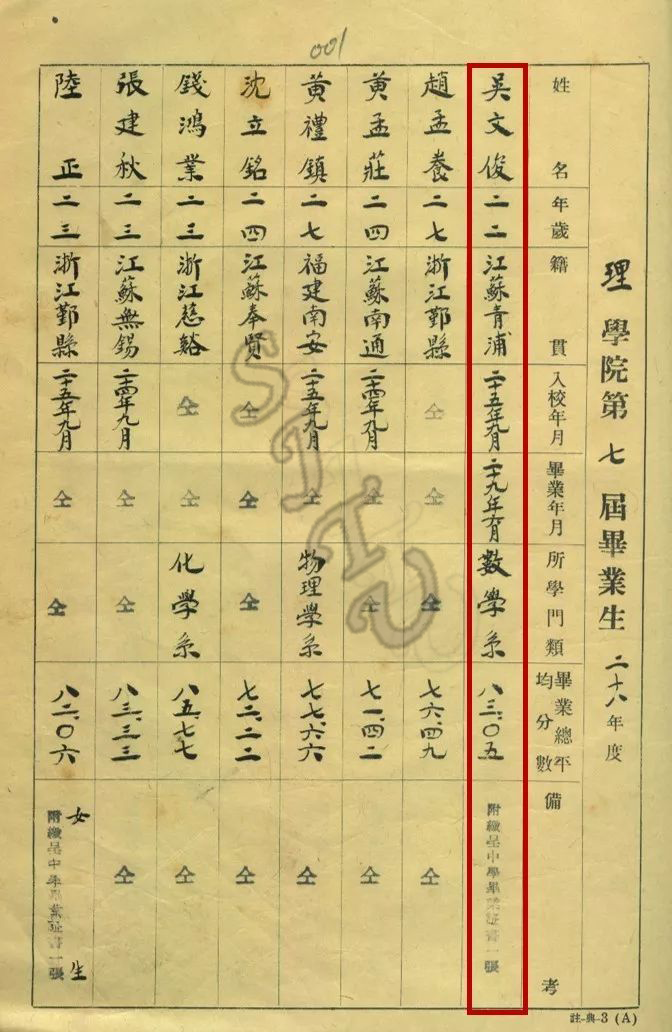 001
理學院第七屆畢業生 二十八年度
姓名 年歲 籍貫 入校年月 畢業年月 所學門類 畢業總平均分數 備考
吳文俊 二二 江蘇青浦 二十五年九月 二十九年六月 數學系 八三.〇五 附繳呈中學畢業証書一張
趙孟養 二七 浙江鄞縣 仝 仝 仝 七六.四九 仝
黃孟莊 二四 江蘇南通 二十四年九月 仝 仝 七一.四二 仝
黃禮鎮 二七 福建南安 二十五年九月 仝 物理學系 七七.六六 仝
沈立銘 二四 江蘇奉賢 仝 仝 仝 七二.二二 仝
錢鴻業 二三 浙江慈谿 仝 仝 化學系 八五.七七 仝
張建秋 二三 江蘇無錫 二十四年九月 仝 仝 八三.三三 仝
陸正 二三 浙江鄞縣 二十五年九月 仝 仝 八二.〇六 女生 附繳呈中學畢業証書一張
註-典-3 (A)
SJTU